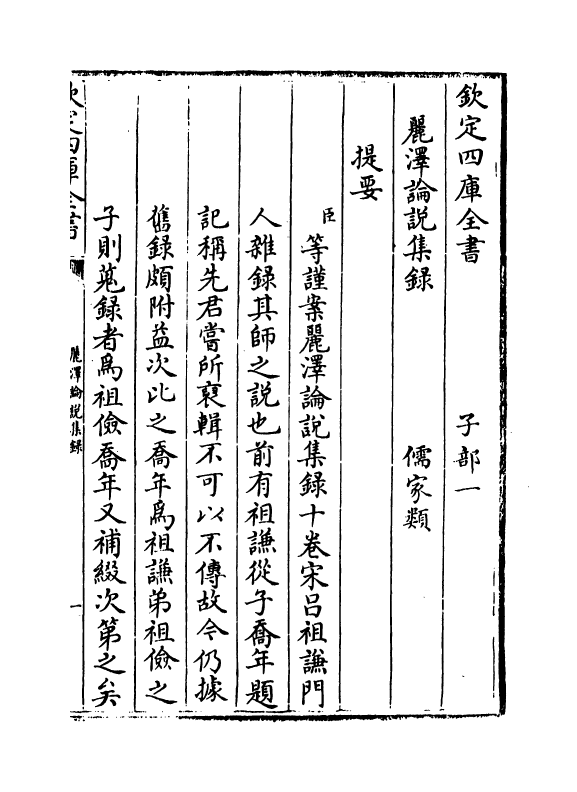 欽定四庫全書　子部一
麗澤論說集録　儒家類
提要
臣等謹案麗澤論說集録十卷宋吕祖謙門
人雜録其師之說也前有祖謙從子喬年題
記稱先君嘗所裒輯不可以不傳故今仍據
舊録頗附益次比之喬年爲祖謙弟祖儉之
子則蒐録者爲祖儉喬年又補綴次第之矣
欽定四庫全書
麗澤論說集録
一